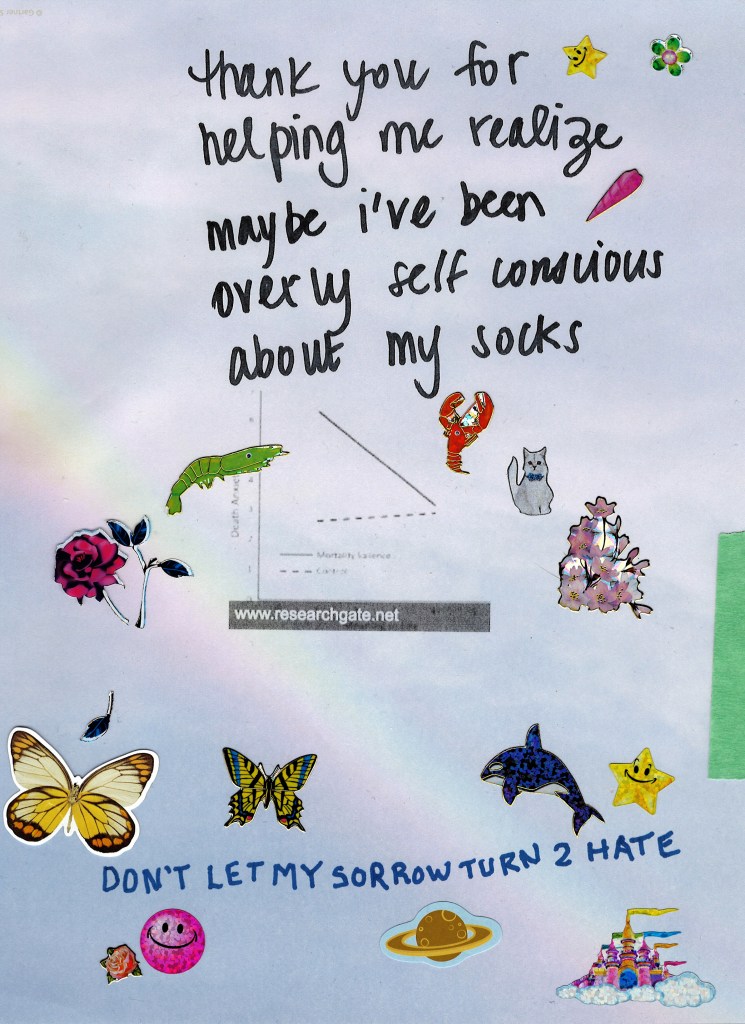 thank you for
helping me realize
maybe i've been
overly self conscious
about my socks
Death Anxiety
Mortality Salience
Control
www.researchgate.net
DON'T LET MY SORROW TURN 2 HATE